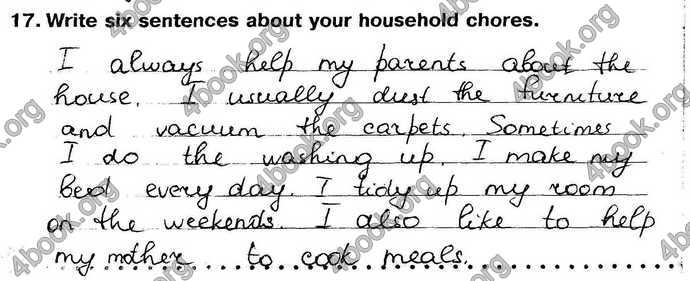 17. Write six sentences about your household chores.
I always help my parents about the
house. I usually dust the furniture
and vacuum the carpets. Sometimes
I do the washing up. I make my
bed every day. I tidy up my room
on the weekends. I also like to help
my mother to cook meals.
4book.org